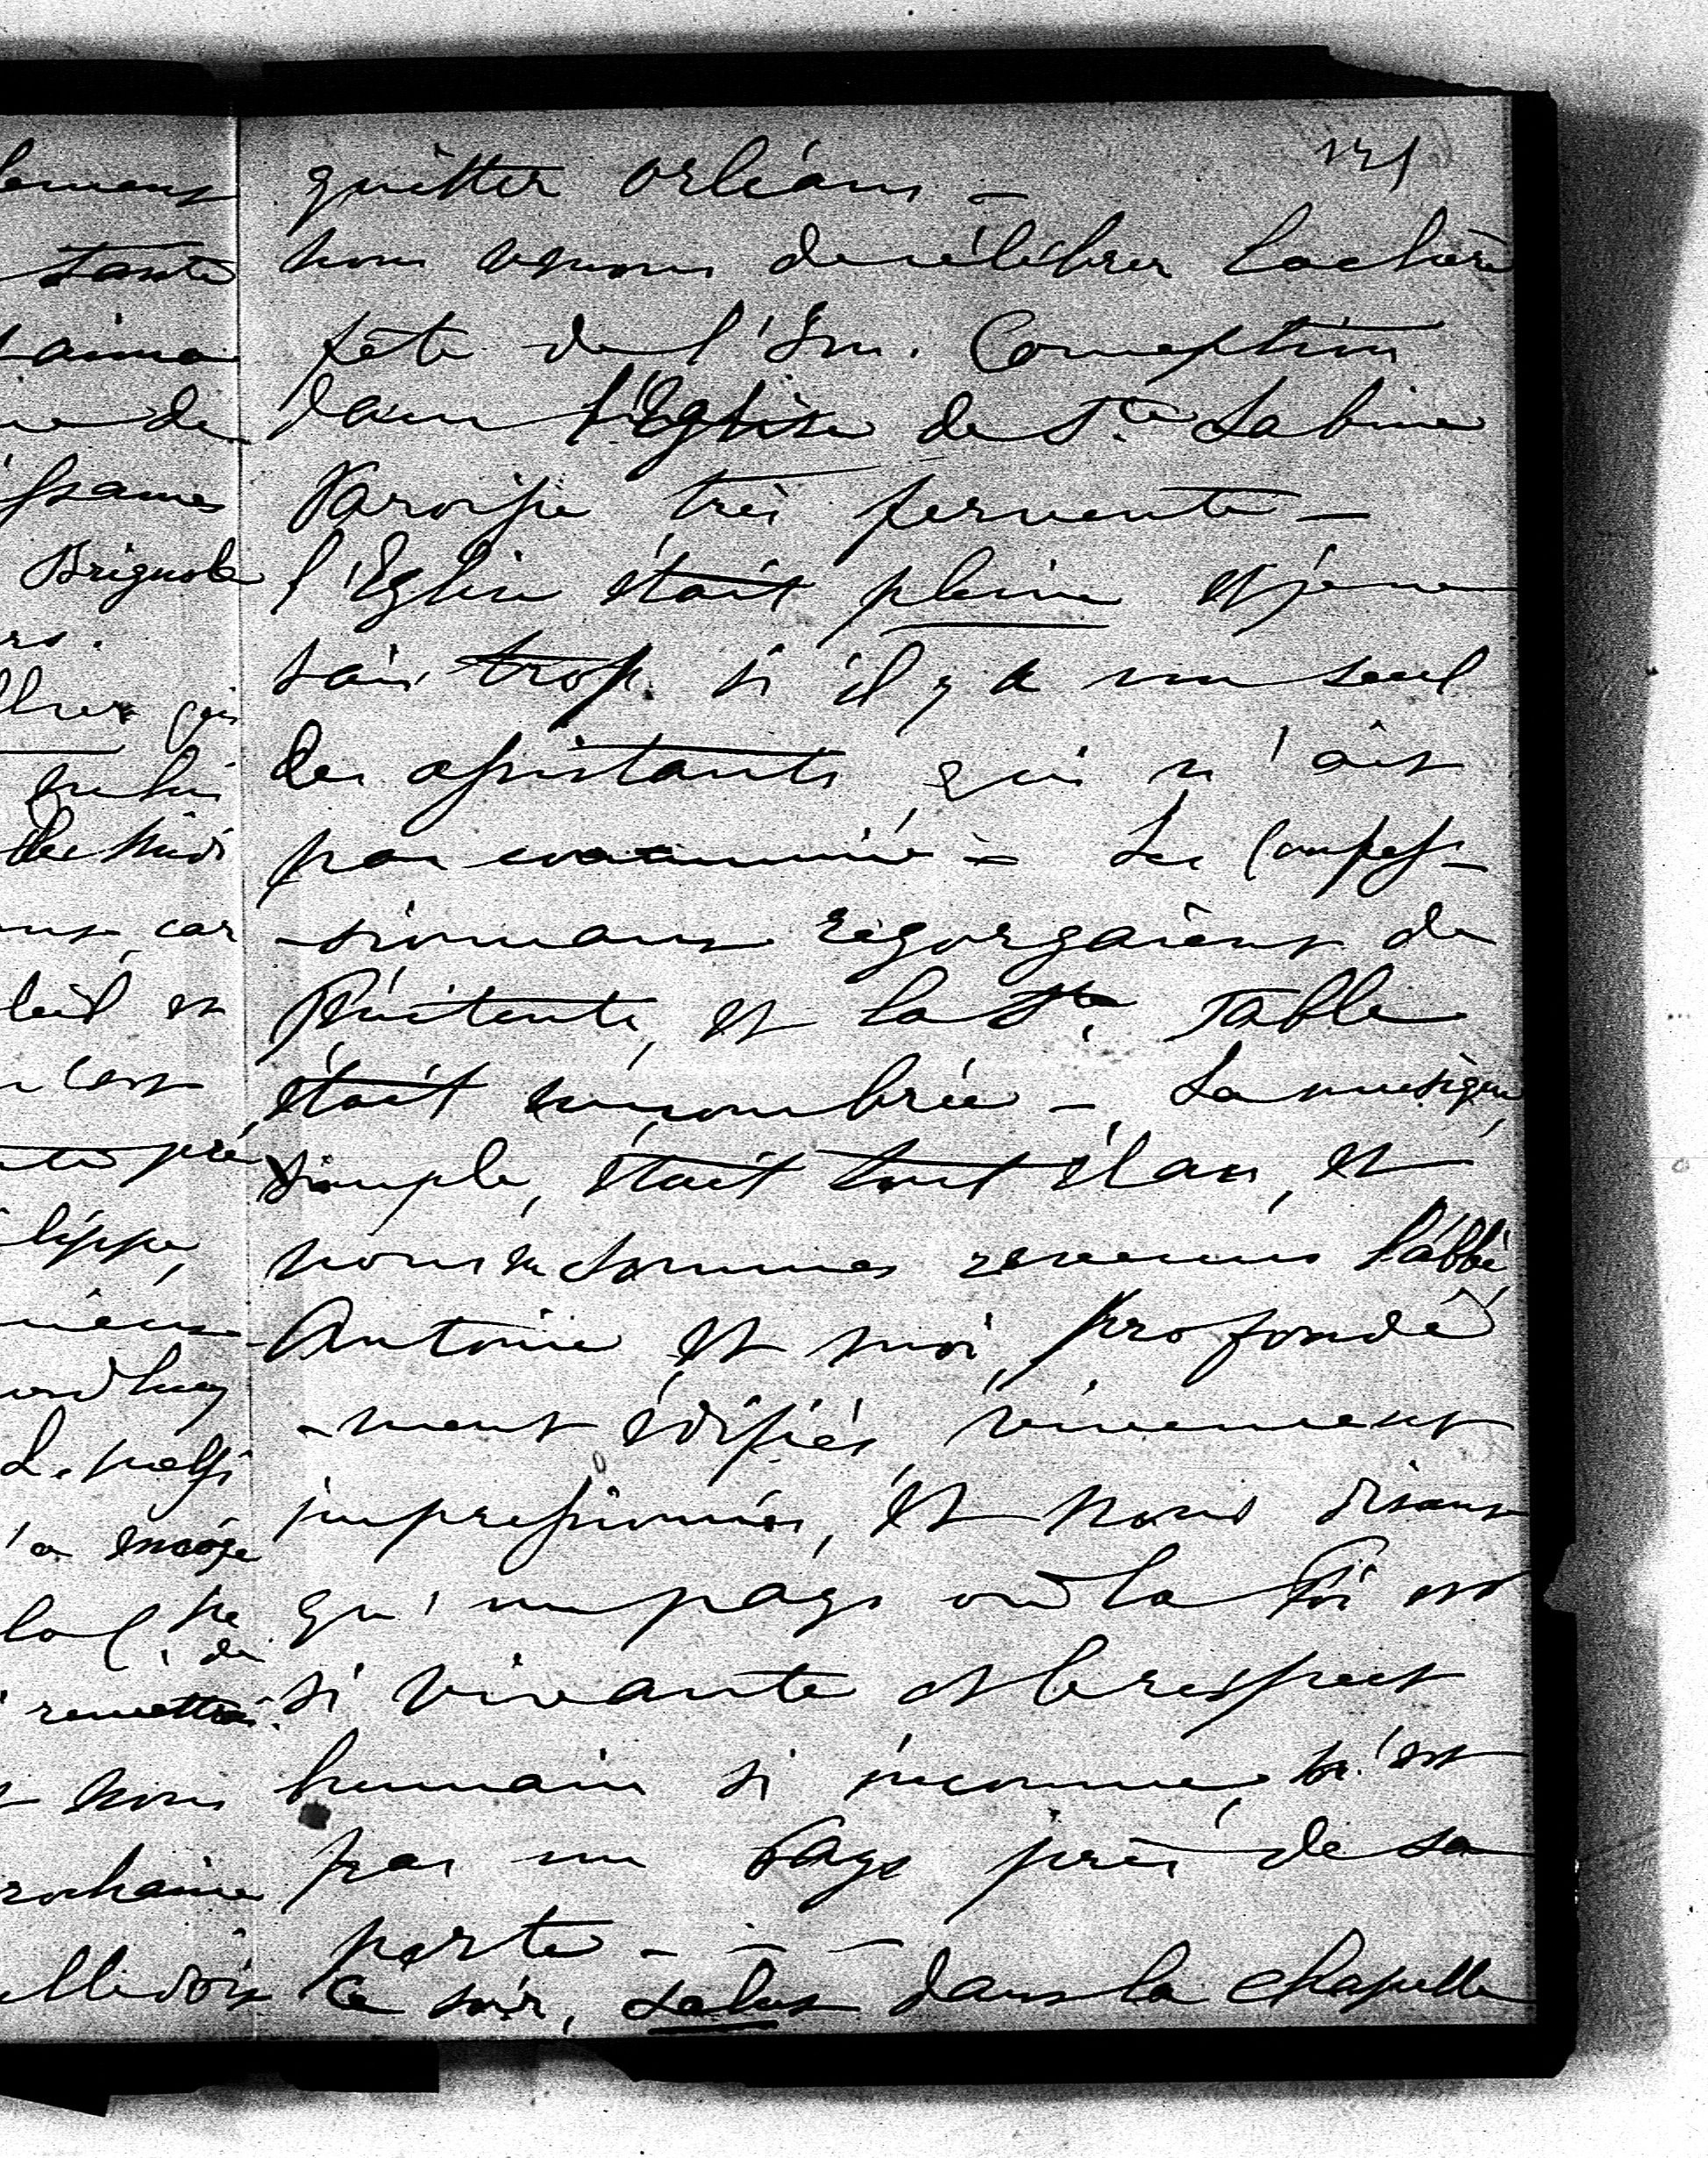 121
quitter Orléans —
nous venons de célébrer la chère
fête de l'Im. Conception
dans l'Eglise de Ste Sabine
Paroisse très fervente —
l'Eglise était pleine et je ne
sais trop si il y a un seul
des assistants qui n'ait
pas communié — Les Confes-
-sionnaux regorgaient de
Pénitents, et la Ste Table
était encombrée — La musique,
simple, était tout élan, et
nous en sommes revenus l'abbé
Antoine et moi, profondé
-ment édifiés, vivement
impressionnés, et nous disant
qu'un pays où la foi est
si vivante et le respect
humain si inconnu, n'est
pas un Pays près de sa
perte - - -
Ce soir, salut dans la chapelle
tante
aima
de
Brignole
car
et
encore
remettrai
nous